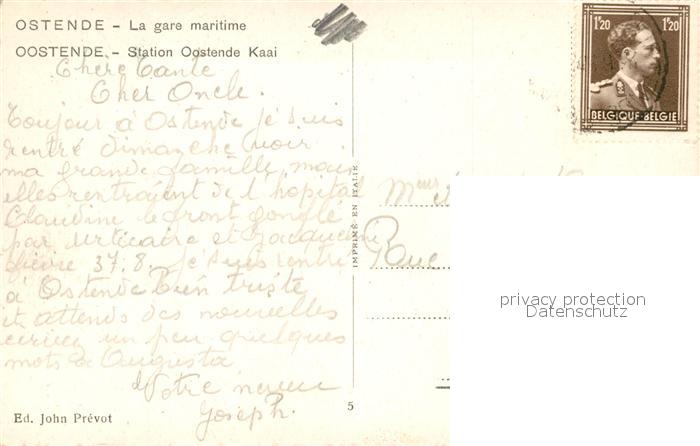 OSTENDE – La gare maritime
OOSTENDE – Station Oostende Kaai
Chère Tante
Cher Oncle.
Toujour à Ostende je suis
rentré dimanche voir
ma grande famille, mais
elles rentraient de l'hopital
Claudine le front gonglé
par urticaire et Jacqueline
fièvre 37:8. je suis rentré
à Ostende bien triste
et attends des nouvelles
un peu quelques
mots à Augusta
Votre neveu
Joseph.
Ed. John Prévot
5
IMPRIMÉ EN ITALIE
1F20 1F20
BELGIQUE-BELGIE
Rue
privacy protection
Datenschutz